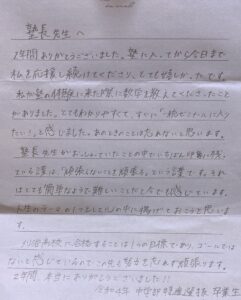 塾長先生へ
2年間ありがとうございました。塾に入ってから今日まで
私を応援し続けてくださり、とても嬉しかったです。
私が塾の体験に来た際に数学を教えてくださったこと
がありました。とてもわかりやすくて、すぐに「絶対ここに入り
たい!」と感じました。あのときのことは忘れないと思います。
塾長先生がおっしゃっていたことの中でいちばん印象に残っ
ている言葉は「頑張らないことを頑張る」という言葉です。それ
はとても簡単なようで難しいことだと今でも感じています。
人生のテーマの1つとして心の中に掲げておこうと思いま
す。
高校に合格することは1つの目標であり、ゴールではな
いと感じているのでこの先も努力をたゆまず頑張ります。
2年間、本当にありがとうございました!!
令和4年 中学部特進選抜 卒業生